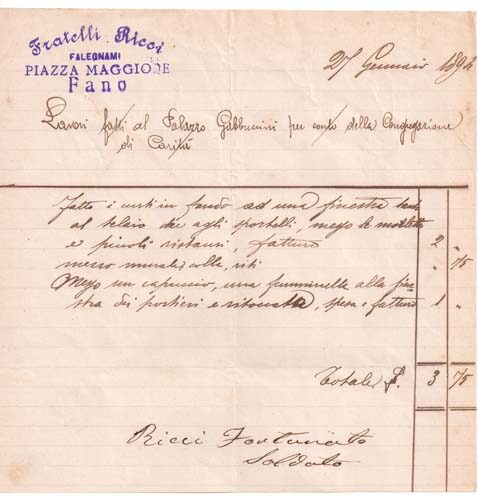 Fratelli Ricci
FALEGNAMI
PIAZZA MAGGIORE
Fano
27 Gennaio 1894
Lavori fatti al Palazzo Gabbuccini per conto della Congregazione
di Carità
Fatto i in fondo ad una finestra
al telaio che agli sportelli, messo le mollette
e piccoli ristauri, fattura 2 "
messo colla, viti " 75
Messo un capuccio, una femminella alla fine-
stra dei portieri e ritoccatta, spesa e fattura 1 "
Totale £. 3 75
Ricci Fortunato
Soldato